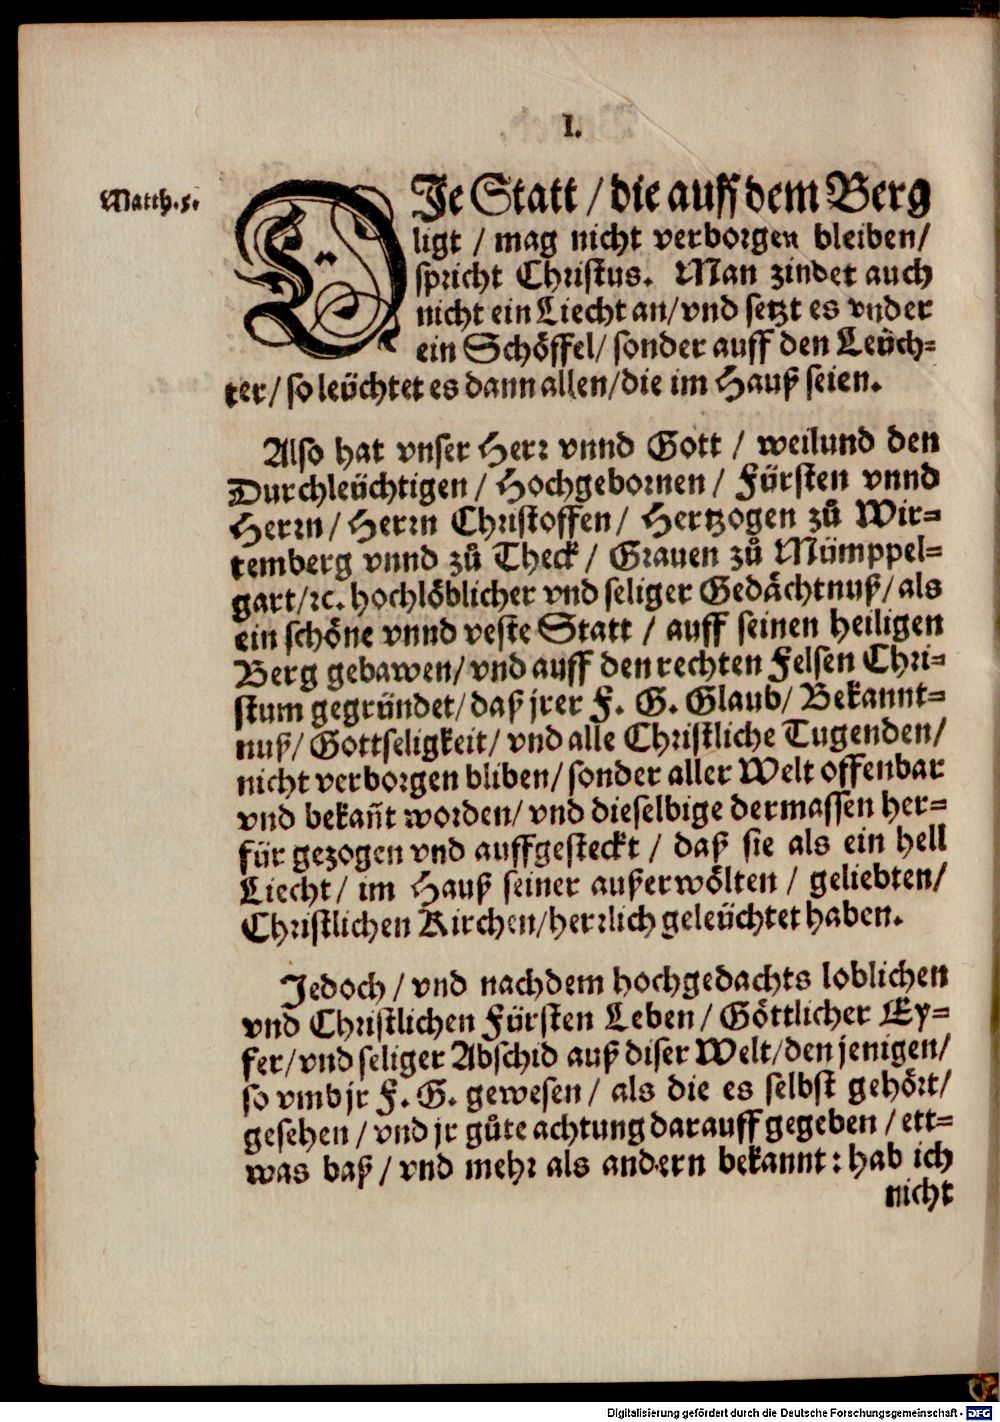 I.
Matth.5.
DIe Statt / die auff dem Berg
ligt / mag nicht verborgen bleiben/
spricht Christus. Man zindet auch
nicht ein Liecht an/ vnd setzt es vnder
ein Schöffel/ sonder auff den Leüch-
ter/ so leüchtet es dann allen/ die im Hauß seien.
Also hat vnser Herr vnnd Gott / weilund den
Durchleüchtigen / Hochgebornen / Fürsten vnnd
Herrn/ Herrn Christoffen/ Hertzogen zů Wir-
temberg vnnd zů Theck / Grauen zů Mümppel-
gart/ ꝛc. hochlöblicher vnd seliger Gedächtnuß/ als
ein schöne vnnd veste Statt / auff seinen heiligen
Berg gebawen/ vnd auff den rechten Felsen Chri-
stum gegründet/ daß jrer F. G. Glaub/ Bekannt-
nuß/ Gottseligkeit/ vnd alle Christliche Tugenden/
nicht verborgen bliben/ sonder aller Welt offenbar
vnd bekañt worden/ vnd dieselbige dermassen her-
für gezogen vnd auffgesteckt / daß sie als ein hell
Liecht/ im Hauß seiner außerwölten / geliebten/
Christlichen Kirchen/ herrlich geleüchtet haben.
Jedoch / vnd nachdem hochgedachts loblichen
vnd Christlichen Fürsten Leben/ Göttlicher Ey-
fer/ vnd seliger Abschid auß diser Welt/ den jenigen/
so vmb jr F. G. gewesen / als die es selbst gehört/
gesehen / vnd jr gůte achtung darauff gegeben / ett-
was baß / vnd mehr als andern bekannt: hab ich
nicht
Digitalisierung gefördert durch die Deutsche Forschungsgemeinschaft - DFG